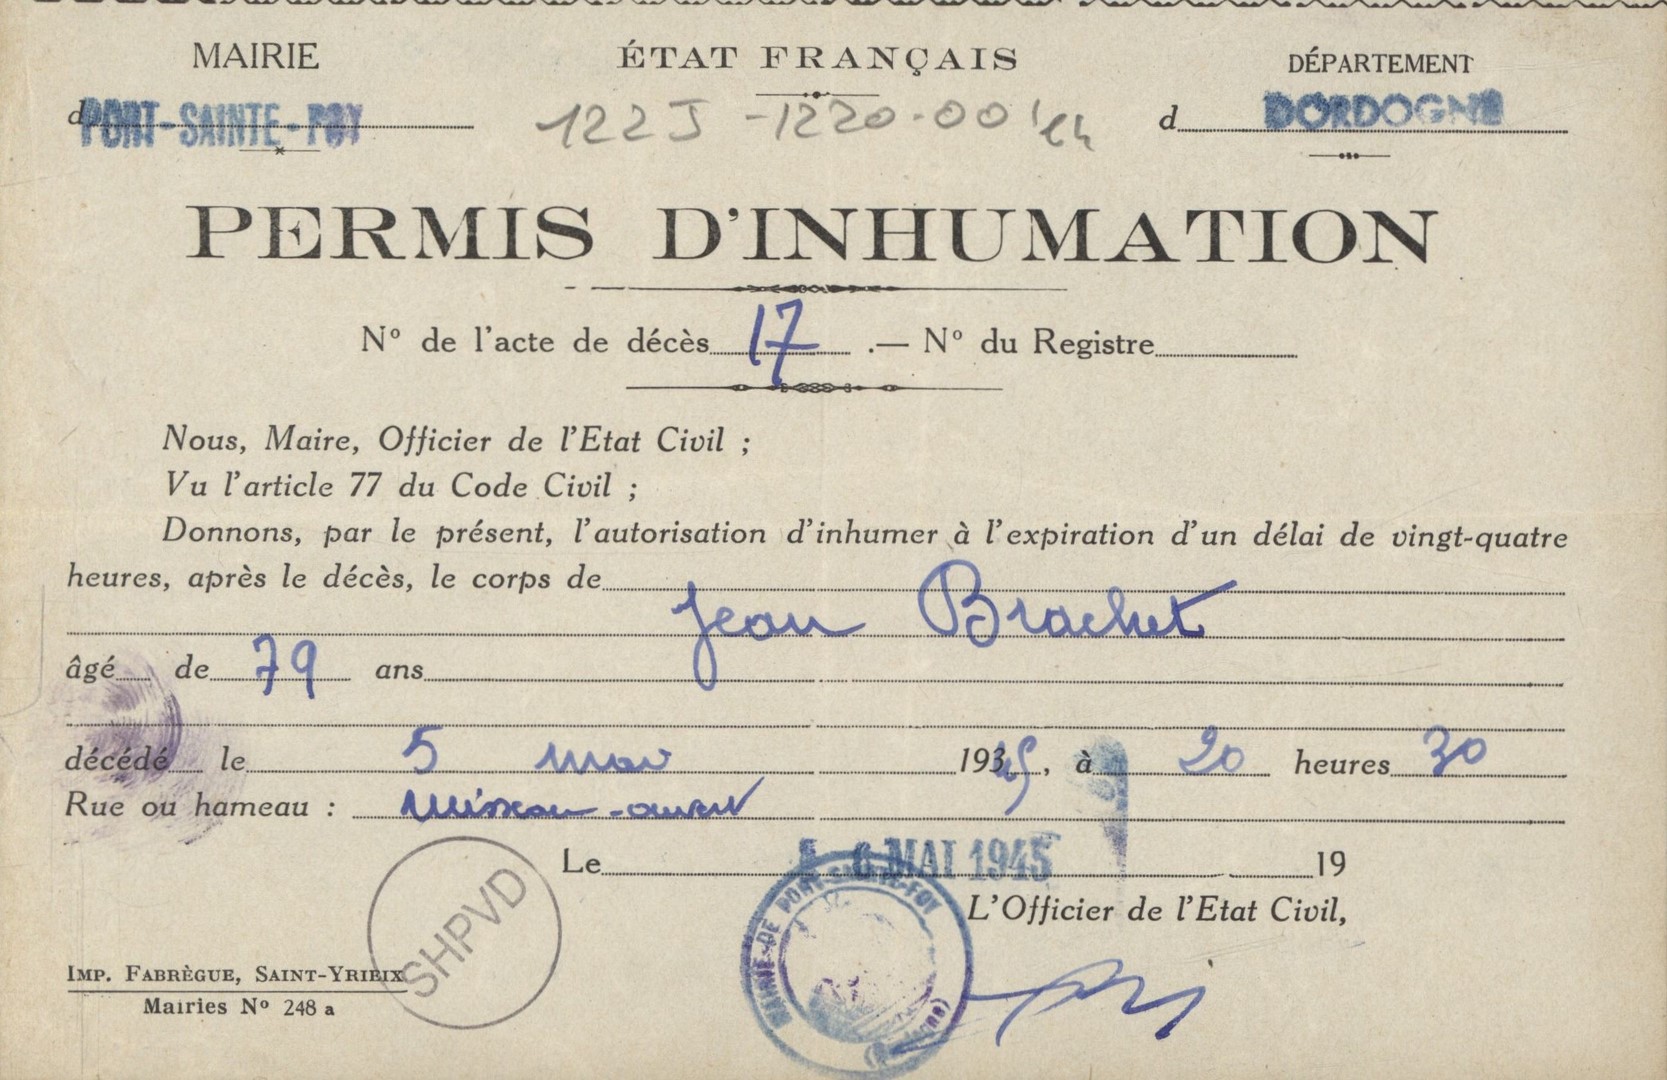 MAIRIE ÉTAT FRANÇAIS DÉPARTEMENT
d PORT-SAINTE-FOY 122J-1220-00 d DORDOGNE
PERMIS D'INHUMATION
N° de l'acte de décès 17 .— N° du Registre
Nous, Maire, Officier de l'Etat Civil ;
Vu l'article 77 du Code Civil ;
Donnons, par le présent, l'autorisation d'inhumer à l'expiration d'un délai de vingt-quatre
heures, après le décès, le corps de
Jean Brachet
âgé de 79 ans
décédé le 5 mai 1945, à 20 heures 30
Rue ou hameau :
Le 6 MAI 1945 19
L'Officier de l'Etat Civil,
MAIRIE DE PORT-SAINTE-FOY
SHPVD
IMP. FABRÈGUE, SAINT-YRIEIX
Mairies N° 248 a